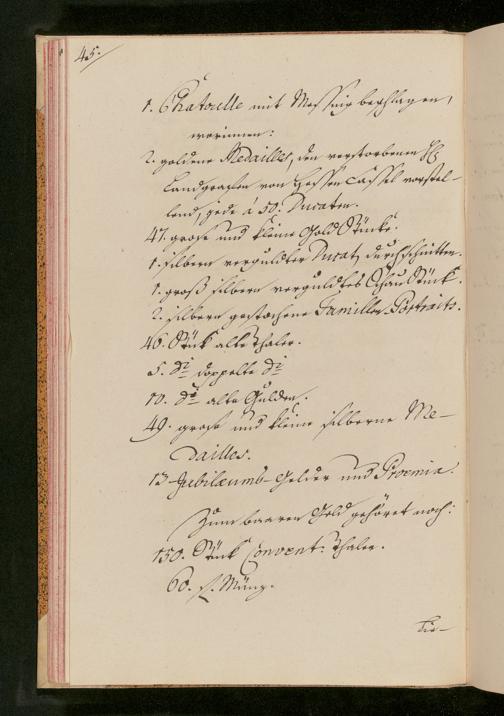 45.
1. Chatoulle mit Messing beschlagen,
worinnen:
2. goldene Medailles, den verstorbenen H
Landgrafen von Hessen Cassel vorstel-
lend, jede á 50. Ducaten.
47. große und kleine Gold Stücke.
1. silbern verguldter Ducat, durchschnitten.
1. groß silbern verguldtes Schau Stück.
2. silbern gestochene Familien Portraits.
46. Stück alte Thaler.
5. do doppelte do
10. do alte Gulden.
49. große und kleine silberne Me-
dailles.
13. Jubilæums-Gelder und Proemia.
Zum baaren Geld gehöret noch:
150. Stück Convent: Thaler.
60. f. Münz.